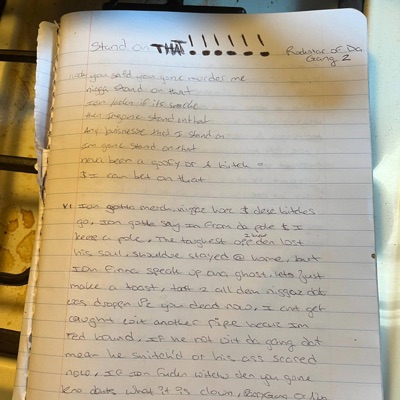 Stand on THAT!!!!!!
Rockstar of Da Gang 2
you said your gone murder me
nigg stand on that
Ion if its smoke
then stand onthat
Any busnesse that I stand on
Im gone stand on that
neva been a goofy or A bitch =
$ I can bet on that
v.1 Ion gotta niggaz hoez $ dese bitches
go, Ion gotta say Im from da pole $ I
keep a pole, The toughest opp I knew den lost
his soul, should've stayed @ home, but
Ion finna speak up ona ghost, lets just
make a toast, toast 2 all dem niggaz dat
dropn Se you dead now, I cant get
caught wit another pipe becuz Im
Fed bound, If he not wit da gang dat
mean he snitch'd or his ass scared
now, if Ion fuckn witchu den you gone
what it is clown,